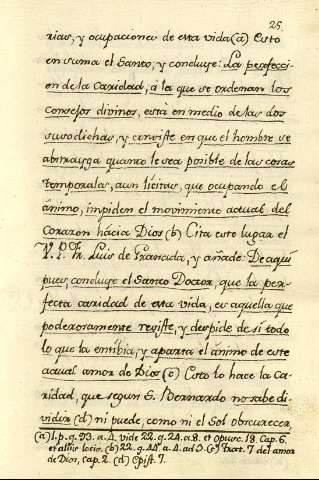 25.
rias, y ocupaciones de esta vida (a) Esto
en suma el Santo, y concluye: La perfecci-
on de la caridad, à la que se ordenan los
consejos divinos, està en medio de las dos
susodichas, y consiste en que el hombre se
abstrayga quanto le sea posible de las cosas
temporales, aun lícitas, que ocupando el
ánimo, impiden el movimiento actual del
Corazon hácia Dios (b) Cita este lugar el
V. P. Fr. Luis de Granada, y añade: De aquí
pues, concluye el Santo Doctor, que la per-
fecta caridad de esta vida, es aquella que
poderosamente resiste, y despide de si todo
lo que la entibia, y aparta el ánimo de este
actual amor de Dios (c) Esto lo hace la Ca-
ridad, que segun S. Bernardo no sabe di-
vidir (d) ni puede, como ni el Sol obscurecer,
(a) 1. p. q. 93. a. 4. vide 22. q. 24. a. 8. et opusc. 18. Cap. 6.
et aliis locis. (b) 22. q. 44. a. 4. ad 3. (c) Trat. 7. del amor
de Dios, cap. 2. (d) Epist. 7.